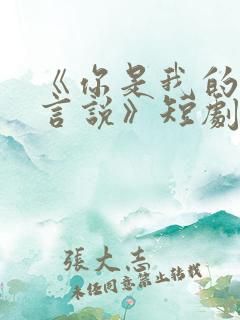 《你是我的
言說》短劇
張大志
未经同意禁止转载